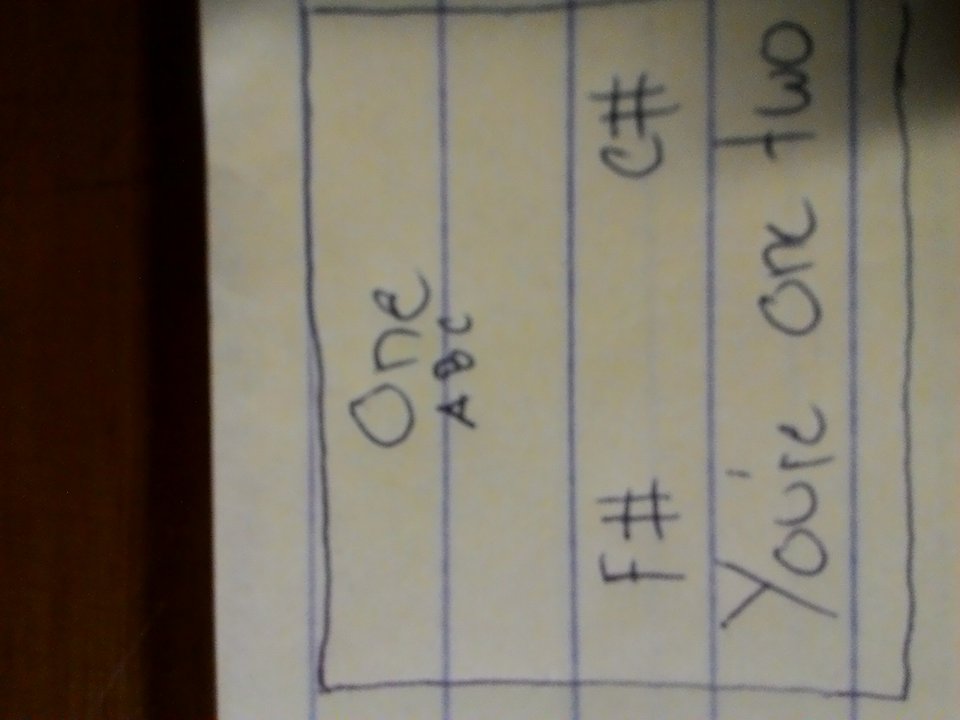 One
ABC
F# C#
You're one two